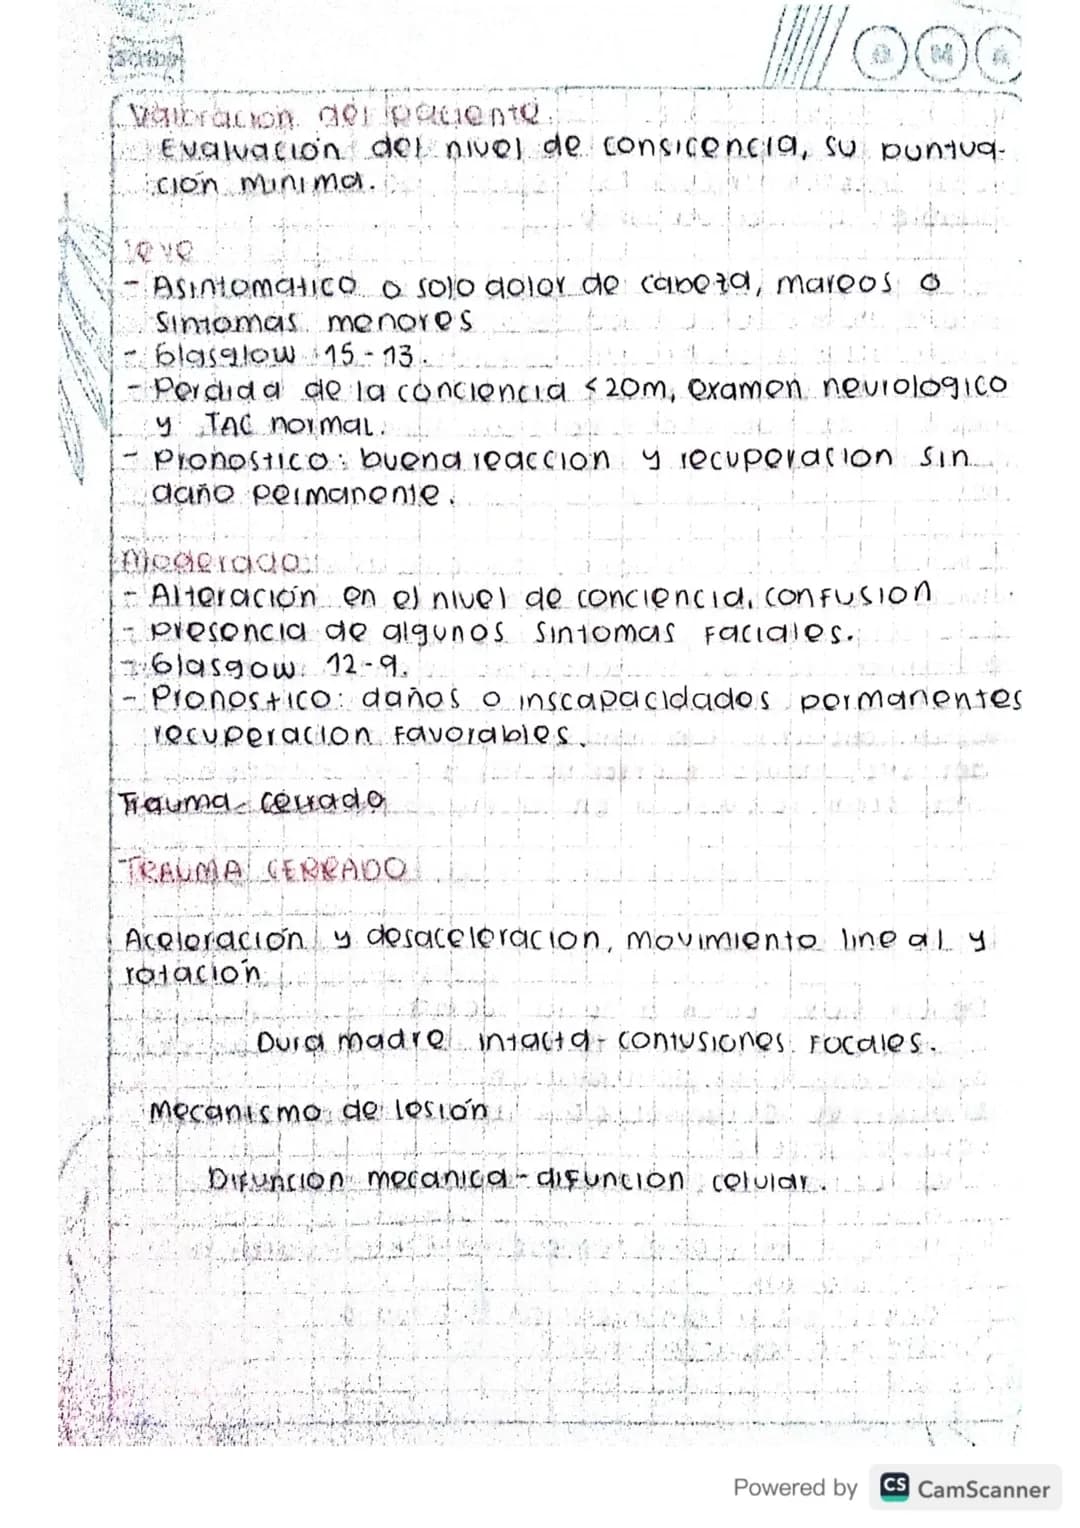 Scribe
D M A
Valoracion del paciente.
Evaluación del nivel de consicencia, su puntua-
ción minima.
leve
- Asintomatico o solo dolor de cabeza, mareos o
Sintomas menores
- Glasglow 15-13.
- Perdida de la conciencia <20m, examen neurologico
y TAC normal.
- Pronostico: buena reaccion y recuperacion sin
daño permanente.
Moderado:
- Alteración en el nivel de conciencia, confusion
- presencia de algunos sintomas faciales.
- Glasgow: 12-9.
- Pronostico: daños o inscapacidados permanentes
recuperacion favorables.
Trauma cerrado
TRAUMA CERRADO
Aceleración y desaceleracion, movimiento lineal y
rotación
Dura madre intacta - contusiones focales.
Mecanismo de lesión
Difuncion mecanica - difunción celular.
Powered by CS CamScanner